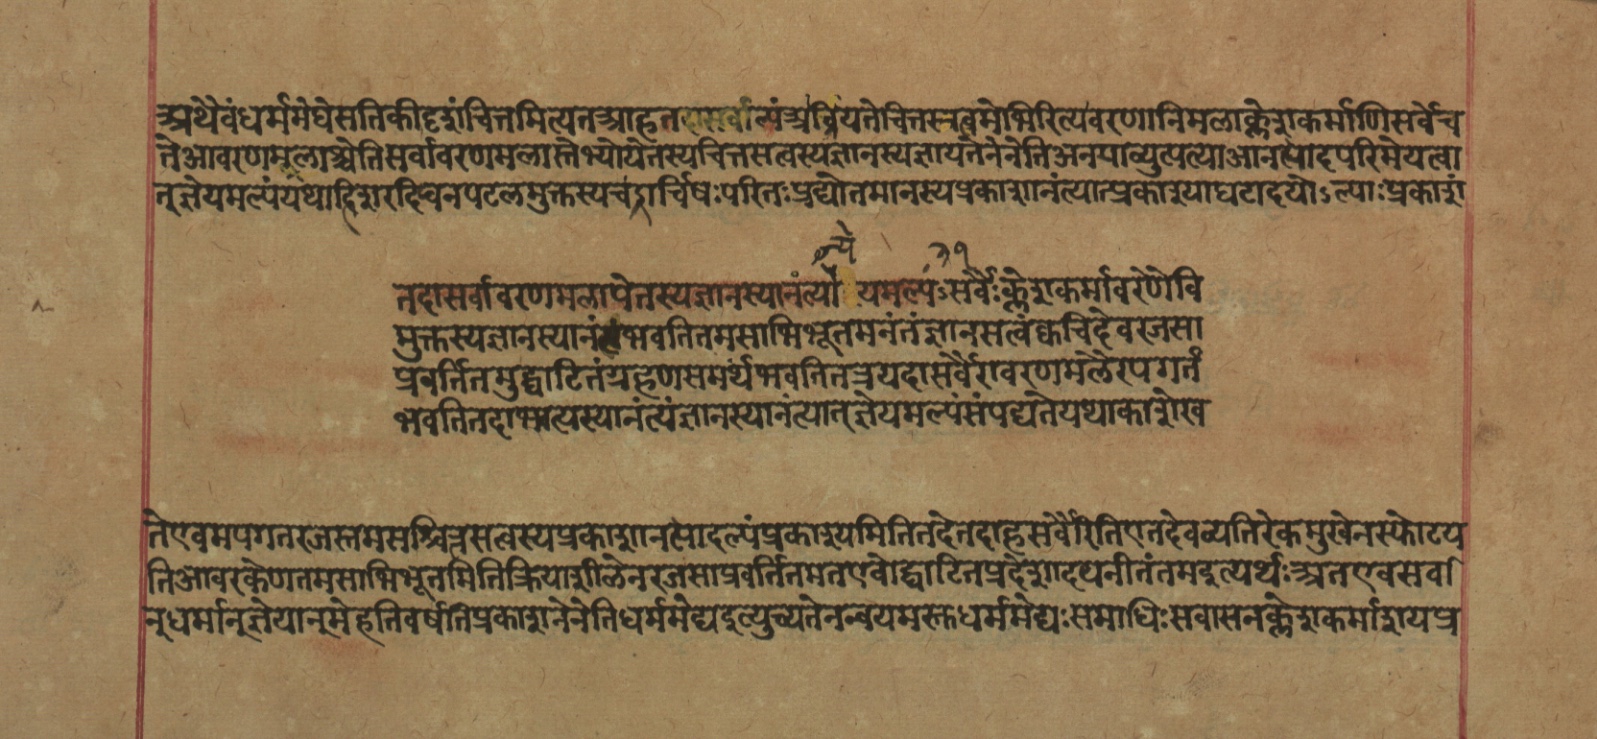 अथैवंधर्ममेघेसतिकीदृशंचित्तमित्यतआहतदासर्वात्यंअव्रियतेचित्तसत्वमेभिरित्यवरणानिमलाक्लेशकर्माणिसर्वेच
तेआवरणमलाश्चेतिसर्वावरणमलास्तेभ्योयेतस्यचित्तसत्वस्यज्ञानस्यज्ञायतेनेनेतिअनयाव्युत्पत्याआनंत्यादपरिमेयत्वा
त्ज्ञेयमल्पंयथाहिशरदिघनपटलमुक्तस्यचंडार्चिषःपरितःप्रद्योतमानस्यप्रकाशानंत्यात्प्रकाश्याघटादयोऽल्पाःप्रकाशं
त्ये ३१
तदासर्वावरणमलापेतस्यज्ञानस्यानंत्यो यमल्पंऽसर्वैःक्लेशकर्मावरणेवि
मुक्तस्यज्ञानस्यानंत्यंभवतितमसाभिभूतमनंतंज्ञानसत्वंक्वचिदेवरजसा
प्रवर्तितमुद्घाटितंग्रहणसमर्थंभवतितत्रयदासर्वैरावरणमलैरपगतं
भवतितदाभात्यस्यानंत्यंज्ञानस्यानंत्यात्ज्ञेयमल्पंसंपद्यतेयथाकाशेख
तेएवमपगतरजस्तमसश्चित्तसत्वस्यप्रकाशानंत्यादल्पंप्रकाश्यमितितदेतदाहसर्वैरितिएतदेवव्यतिरेकमुखेनस्फोटय
तिआवरकेणतमसाभिभूतमितिक्रियाशीलेनरजसाप्रवर्तितमतएवोद्घाटितप्रदेशादपनीतंतमइत्यर्थःअतएवसर्वा
न्धर्मान्ज्ञेयान्मेहतिवर्षतिप्रकाशनेनेतिधर्ममेघइत्युच्यतेनन्वयमस्तुधर्ममेघःसमाधिःसवासनक्लेशकर्माशयप्र